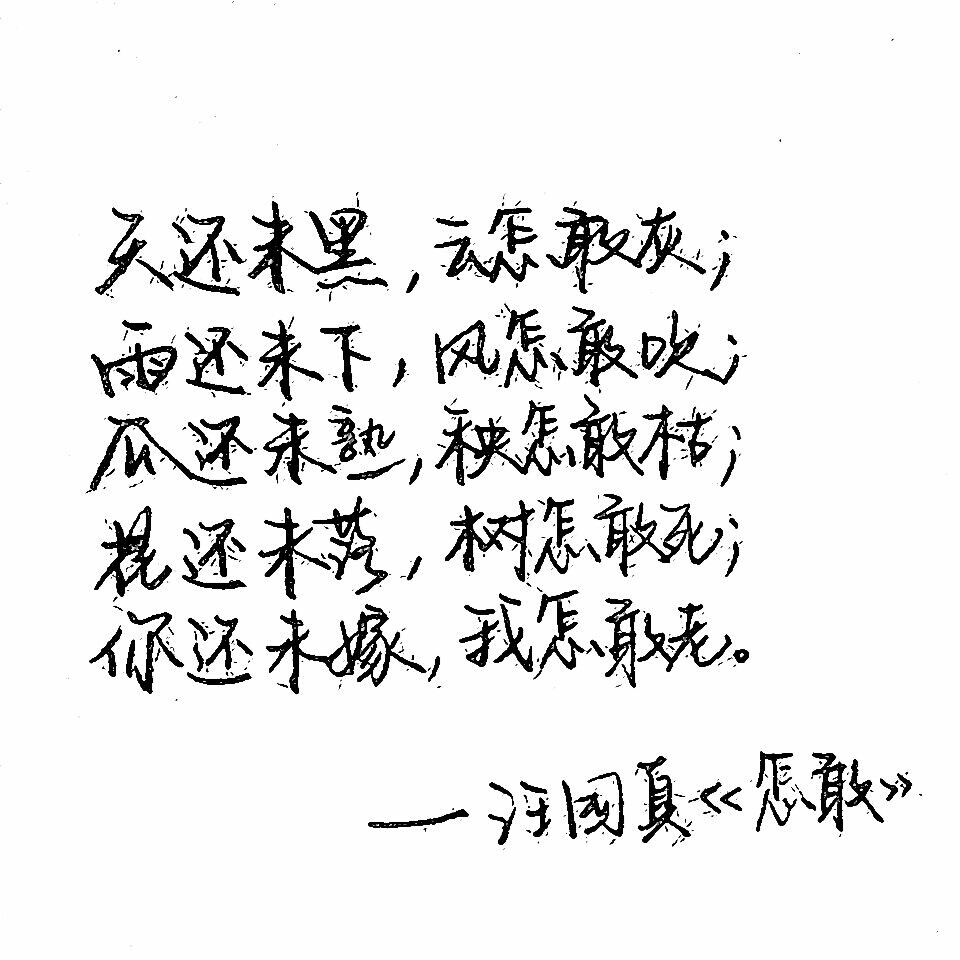 天还未黑，云怎敢灰；
雨还未下，风怎敢吹；
瓜还未熟，秧怎敢枯；
花还未落，树怎敢死；
你还未嫁，我怎敢老。
—汪国真《怎敢》